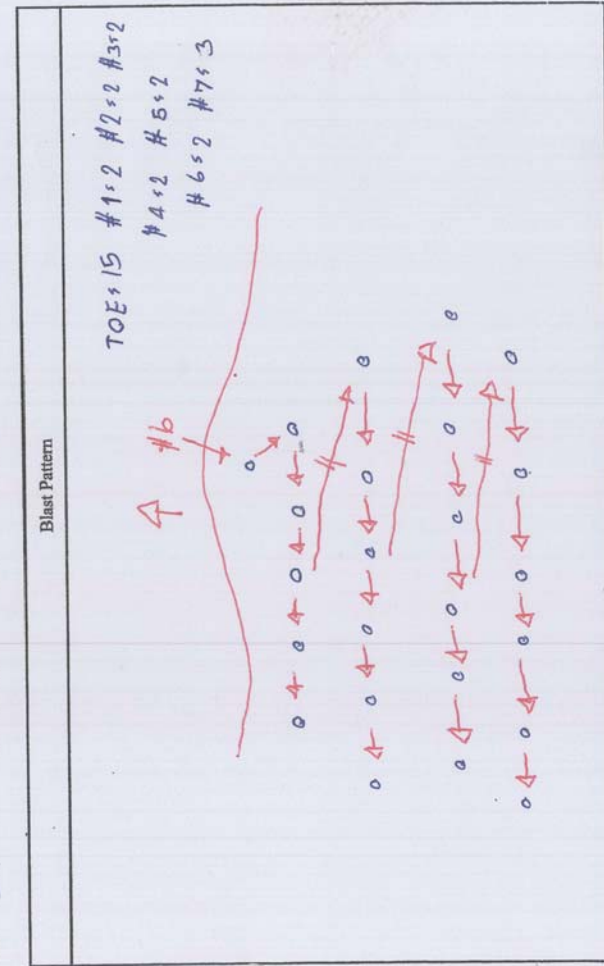 Blast Pattern
TOE=15 #1=2 #2=2 #3=2
#4=2 #5=2
#6=2 #7=3
#6